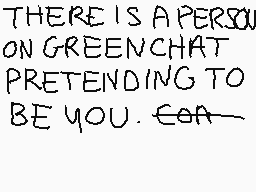 THERE IS A PERSON
ON GREENCHAT
PRETENDING TO
BE YOU.